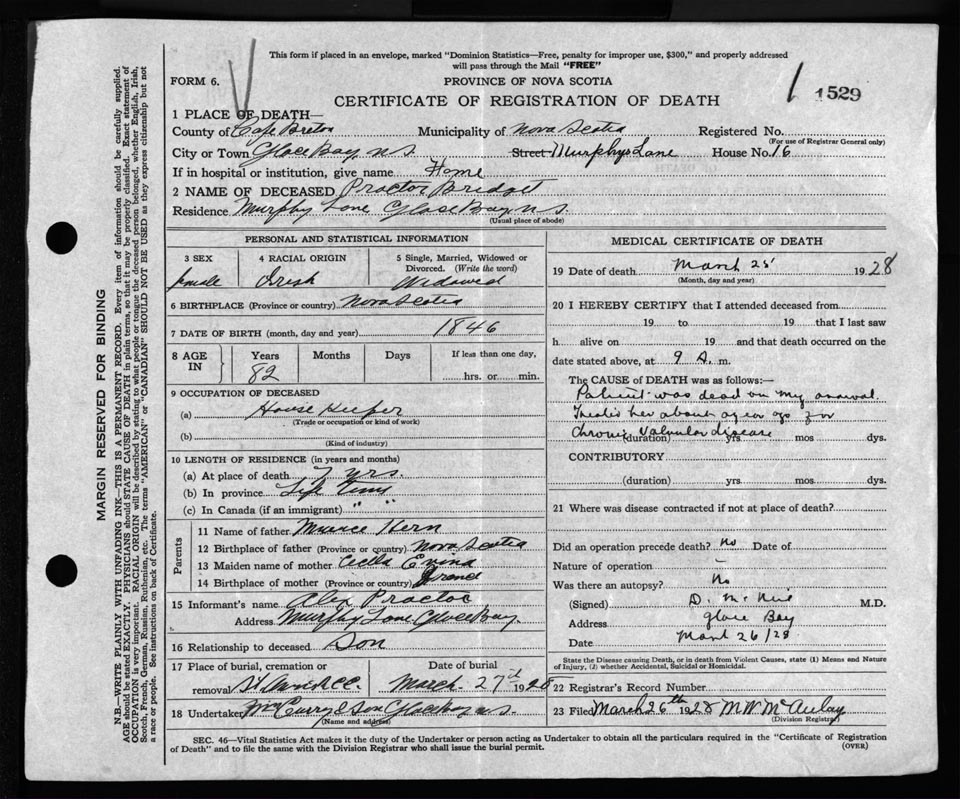 This form if placed in an envelope, marked "Dominion Statistics—Free, penalty for improper use, $300," and properly addressed
will pass through the Mail "FREE"
FORM 6. PROVINCE OF NOVA SCOTIA
CERTIFICATE OF REGISTRATION OF DEATH 1529
1 PLACE OF DEATH—
County of Cape Breton Municipality of Nova Scotia Registered No.
(For use of Registrar General only)
City or Town Glace Bay, N.S. Street Murphys Lane House No. 16
If in hospital or institution, give name Home
2 NAME OF DECEASED Proctor Bridget
Residence Murphy Lane Glace Bay N.S.
(Usual place of abode)
MARGIN RESERVED FOR BINDING
N.B.—WRITE PLAINLY WITH UNFADING INK—THIS IS A PERMANENT RECORD. Every item of information should be carefully supplied.
AGE should be stated EXACTLY. PHYSICIANS should STATE CAUSE OF DEATH in plain terms, so that it may be properly classified. Exact statement of
OCCUPATION is very important. RACIAL ORIGIN will be described by stating to what people or tongue the deceased person belonged, whether English, Irish,
Scotch, French, German, Russian, Ruthenian, etc. The terms "AMERICAN" or "CANADIAN" SHOULD NOT BE USED as they express citizenship but not
a race or people. See instructions on back of Certificate.
PERSONAL AND STATISTICAL INFORMATION
3 SEX 4 RACIAL ORIGIN 5 Single, Married, Widowed or
Divorced. (Write the word)
female Irish Widowed
6 BIRTHPLACE (Province or country) Nova Scotia
7 DATE OF BIRTH (month, day and year) 1846
8 AGE IN Years Months Days If less than one day,
82 hrs. or min.
9 OCCUPATION OF DECEASED
(a) House Keeper
(Trade or occupation or kind of work)
(b)
(Kind of industry)
10 LENGTH OF RESIDENCE (in years and months)
(a) At place of death 7 yrs.
(b) In province Life Time
(c) In Canada (if an immigrant) " "
Parents
11 Name of father Hern
12 Birthplace of father (Province or country) Nova Scotia
13 Maiden name of mother
14 Birthplace of mother (Province or country)
15 Informant's name Alex Proctor
Address Murphy Lane Glace Bay.
16 Relationship to deceased Son
17 Place of burial, cremation or Date of burial
removal March 27 1928
18 Undertaker McCurry & Son Glace Bay N.S.
(Name and address)
MEDICAL CERTIFICATE OF DEATH
19 Date of death March 25 1928
(Month, day and year)
20 I HEREBY CERTIFY that I attended deceased from
19 to 19 that I last saw
h alive on 19 and that death occurred on the
date stated above, at 9 A. m.
The CAUSE OF DEATH was as follows:—
Patient was dead on my arrival.
her about a year ago for
Chronic Valvular disease
(duration) yrs. mos dys.
CONTRIBUTORY
(duration) yrs. mos dys.
21 Where was disease contracted if not at place of death?
Did an operation precede death? no Date of
Nature of operation
Was there an autopsy? No
(Signed) D. M.D.
Address Glace Bay
Date March 26/28
State the Disease causing Death, or in death from Violent Causes, state (1) Means and Nature
of Injury, (2) whether Accidental, Suicidal or Homicidal.
22 Registrar's Record Number
23 Filed March 26th 1928 M.W. McAulay
(Division Registrar)
SEC. 46—Vital Statistics Act makes it the duty of the Undertaker or person acting as Undertaker to obtain all the particulars required in the "Certificate of Registration
of Death" and to file the same with the Division Registrar who shall issue the burial permit.
(OVER)